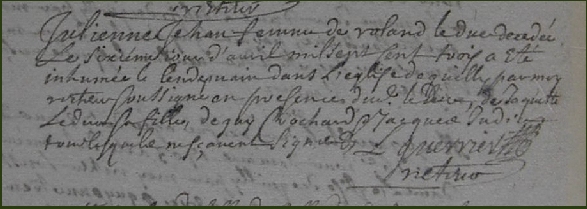 recteur
Julienne Jehan femme de roland le duc decedée
Le sixiéme iour d'avril mil sept cent trois a été
inhumée le lendemain dans L'eglise par moy
recteur soussigné en presence dud. le duc, de Jaquette
Leduc sa fille, de guy Rochard Jacques
tous lesquels ne sçavent signer L guerrier
recteur